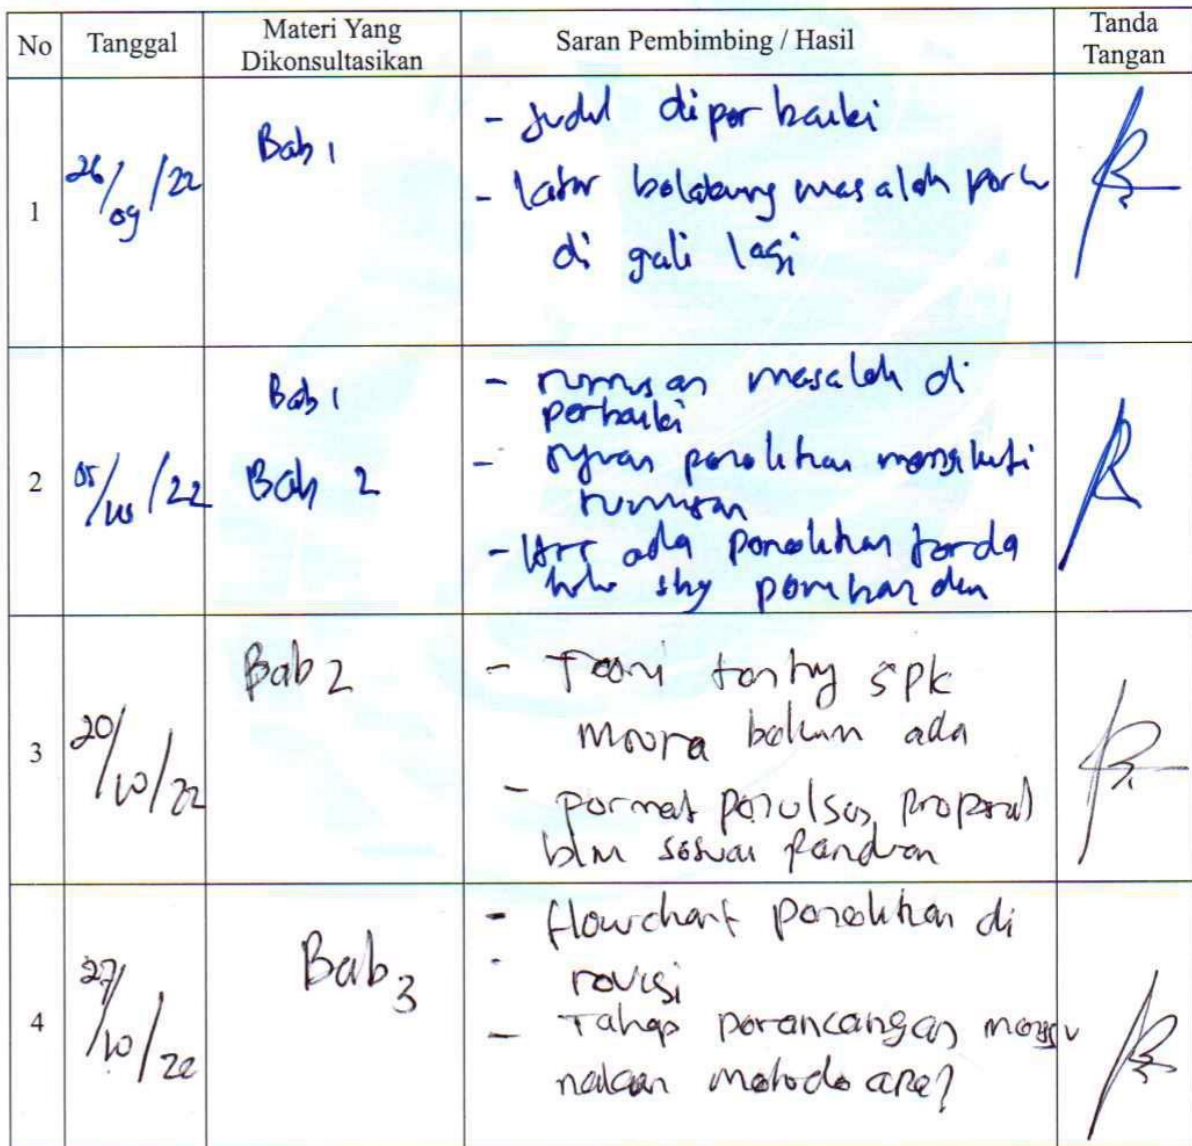 No Tanggal Materi Yang Dikonsultasikan Saran Pembimbing / Hasil Tanda Tangan
1 26/09/22 Bab 1
- Judul diperbaiki
- latar belakang masalah perlu
di gali lagi
2 05/10/22 Bab 1
Bab 2
- rumusan masalah di
perbaiki
- tujuan penelitian mengikuti
rumusan
- ada penelitian terda
hulu sbg
3 20/10/22 Bab 2
- Teori tentang SPK
moora belum ada
- pormat penulisan proposal
blm sesuai Panduan
4 27/10/22 Bab 3
- flowchart penelitian di
revisi
- Tahap perancangan menggu
nakan metode apa?